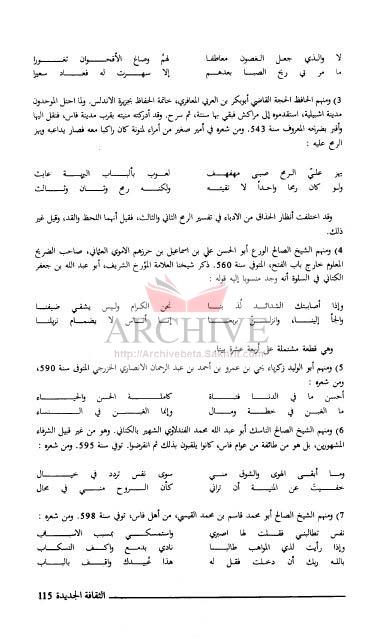 لا والذي جعل الغصون معاطفا لهم وصاغ الأقحوان ثغورا
ما مر في ريح الصبا بعدهم إلا سهرت له فعاد سعيرا
3) ومنهم الحافظ الحجة القاضي أبوبكر بن العربي المعافري، خاتمة الحفاظ بجزيرة الاندلس. ولما احتل الموحدون
مدينة اشبيلية، استقدموه إلى مراكش فبقي بها سنة، ثم سرح. وقد أدركته منيته بقرب مدينة فاس، فنقل اليها
وأقبر بضريحه المعروف سنة 543. ومن شعره في أمير صغير من أمراء لمتونة كان راكبا معه فصار يداعبه ويهز
الرمح عليه :
يهز عليّ الرمح صبي مهفهف لعوب بألباب البرية عابث
ولو كان رمحا واحداً لا تقيته ولكنه رمح وثان وثالث
وقد اختلفت أنظار الحذاق من الادباء في تفسير الرمح الثاني والثالث، فقيل أنهما اللحظ والقد، وقيل غير
ذلك.
4) ومنهم الشيخ الصالح الورع أبو الحسن علي بن اسماعيل بن حرزهم الاموي العثماني، صاحب الضريح
المعلوم خارج باب الفتح، المتوفي سنة 560. ذكر شيخنا العلامة المؤرخ الشريف، أبو عبد الله بن جعفر
الكتاني في السلوة أنه وجد منسوبا إليه قوله :
وإذا أصابتك الشدائد لُذ بنا نحن الكرام وليس يشقي ضيفنا
والجأ إلينا، وانزلن بربعنا إنا أناس لا يضام نزيلنا
ARCHIVE
http://Archivebeta.Sakhrit.com
وهي قطعة مشتملة على أربعة عشرة بيتا.
5) ومنهم أبو الوليد زكرياء يحي بن عمير بن أحمد بن عبد الرحمان الانصاري الخزرجي المتوفى سنة 590،
ومن شعره :
أحسن ما في الدنا فتاة كاملة الحسن والحياء
ما الغبن في خطة ومال وإنما الغبن في النساء
6) ومنهم الشيخ الصالح الناسك أبو عبد الله محمد الفندلاوي الشهير بالكتاني. وهو من غير قبيل الشرفاء
المشهورين، بل هو من طائفة من عوام فاس، كانوا يلقبون بذلك ثم انقرضوا. توفي سنة 595. ومن شعره :
وما أبقى الهوى والشوق مني سوى نفس تردد في خيال
خفيت عن المنية أن تراني كأن الروح مني في محال
7) ومنهم الشيخ الصالح أبو محمد قاسم بن محمد القيسي، من أهل فاس، توفي سنة 598. ومن شعره :
نفس تطالبني فقلت لها اصبري واستمسكي بمسبب الاسباب
وإذا رأيت لذي المواهب طالبا نادي بدمع واكف التسكاب
بالله ربك أن دخلت فقل له هذا عُبيدك واقف بالباب
الثقافة الجديدة 115